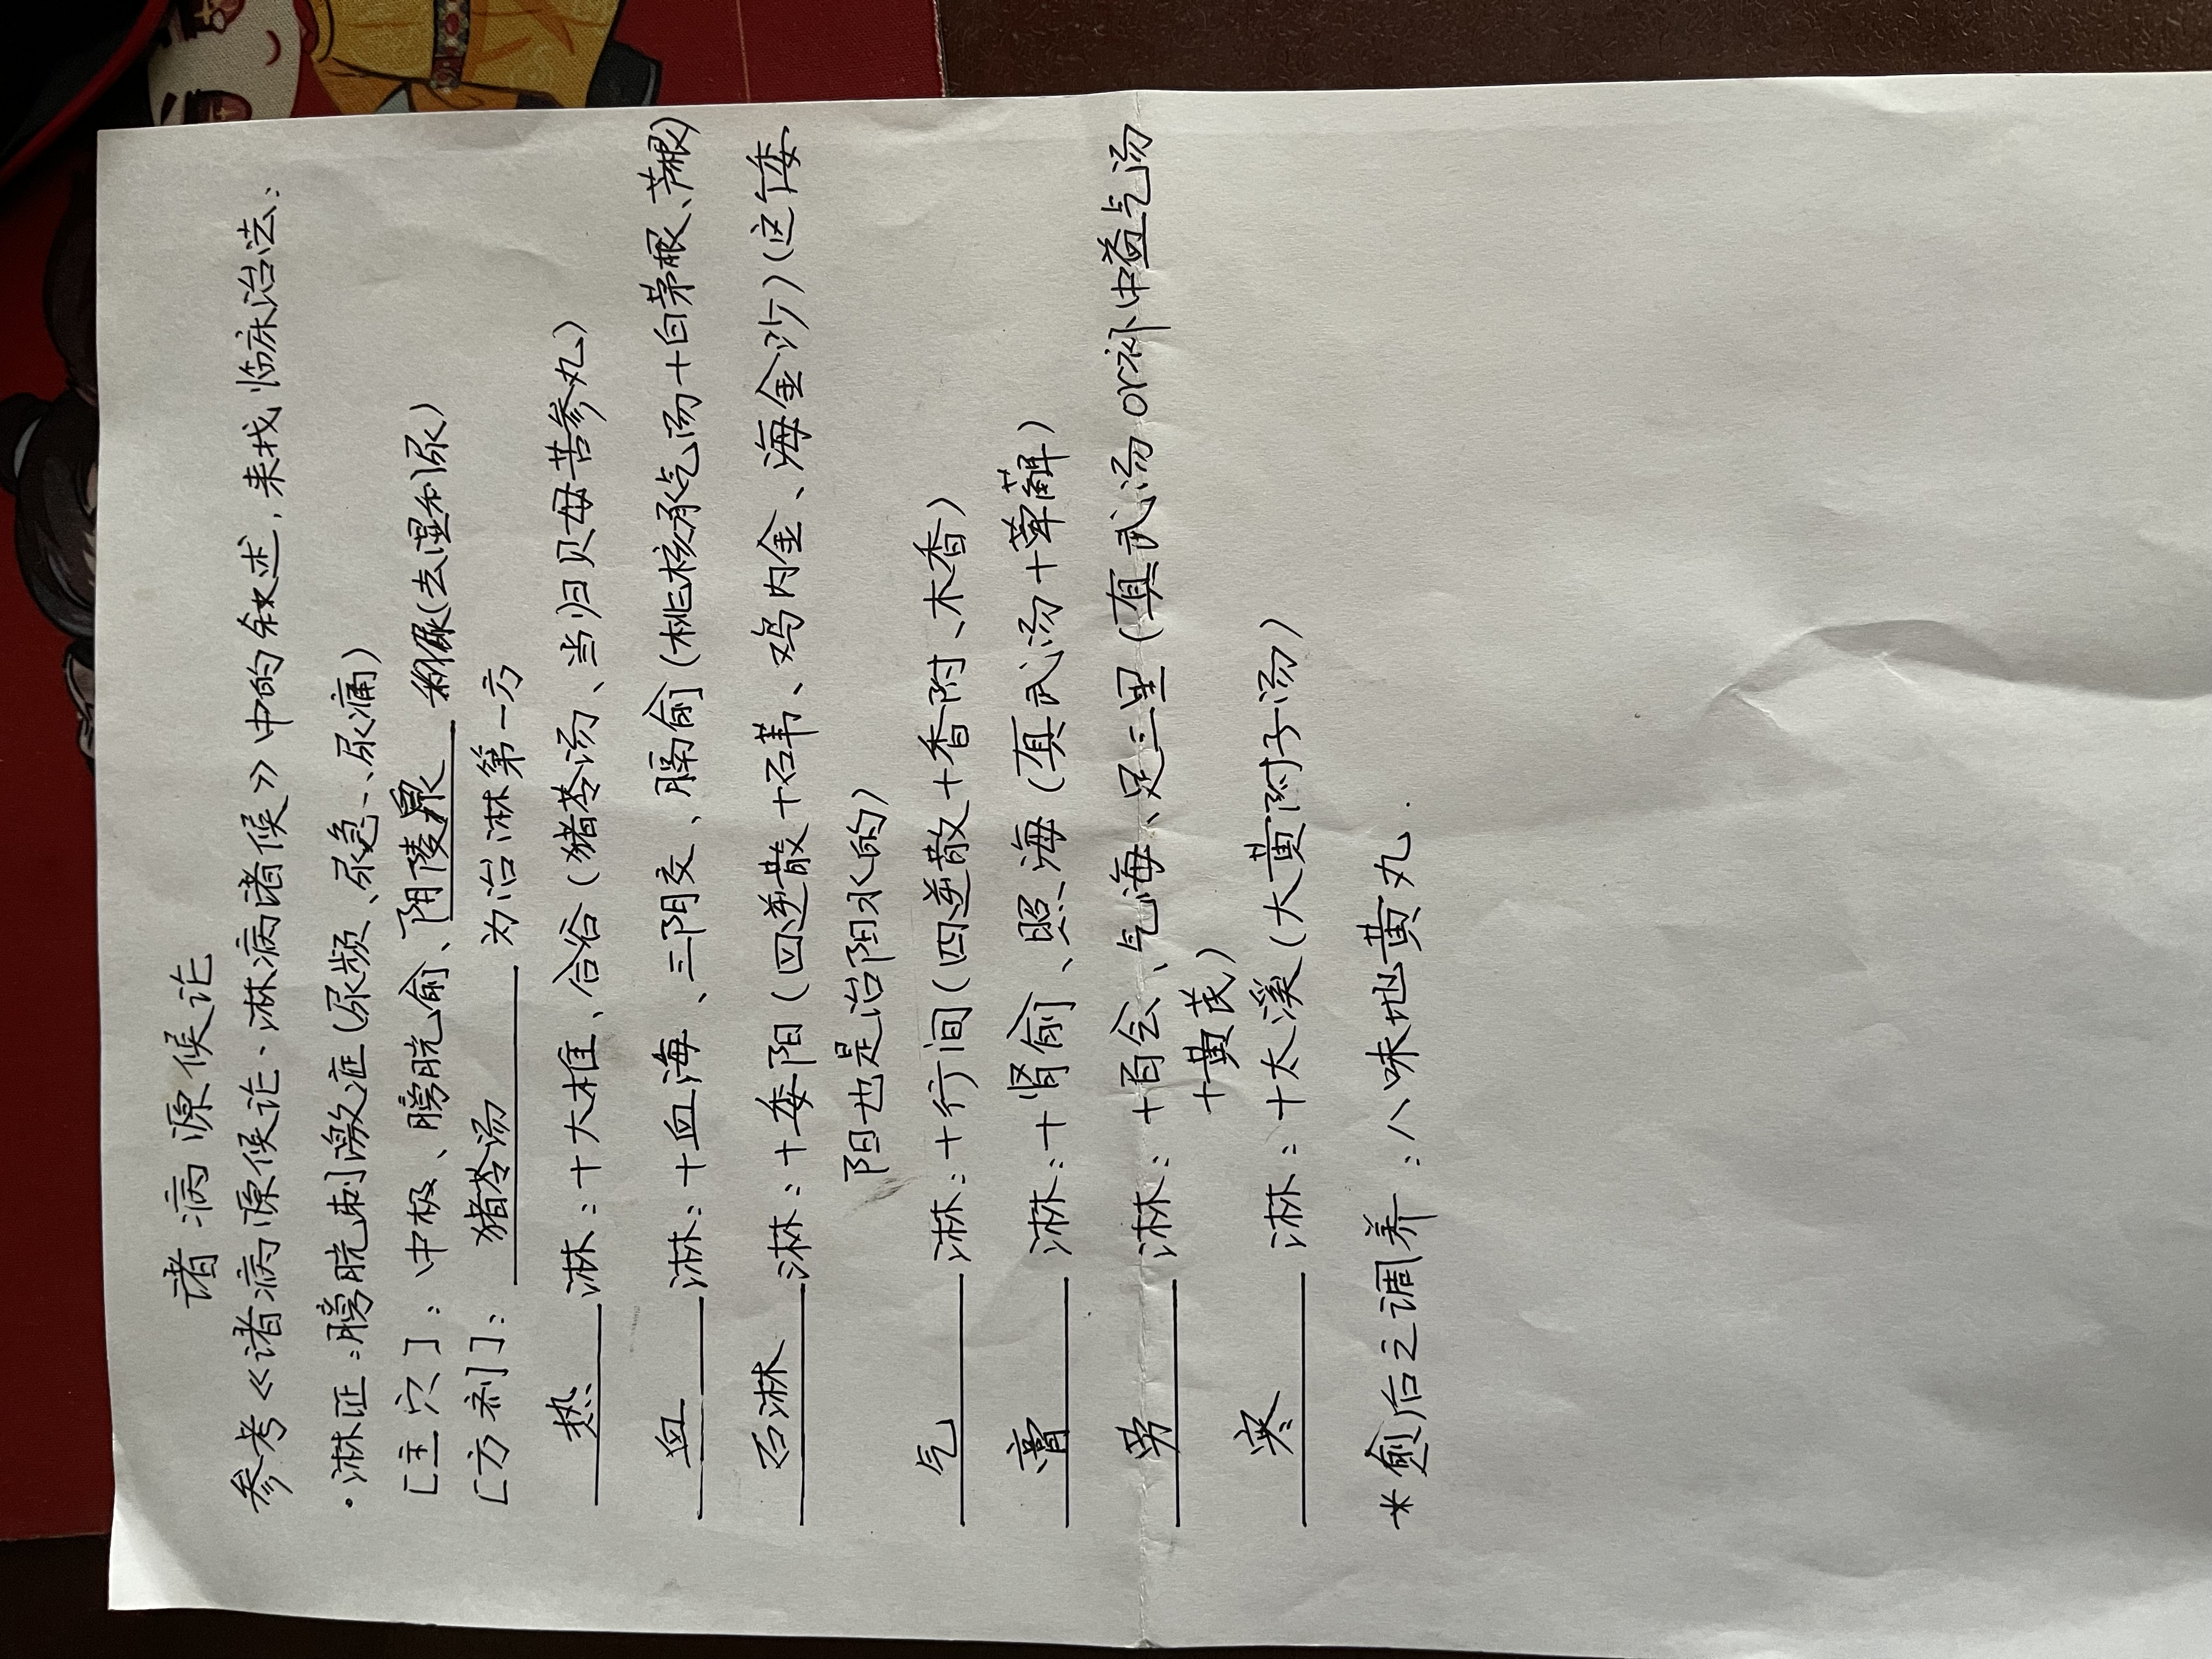 诸病源候论
参考《诸病源候论、淋病诸候》中的叙述，来找临床治法：
·淋证：膀胱刺激症（尿频、尿急、尿痛）
[主穴]：中极、膀胱俞、阴陵泉（去湿利尿）
[方剂]：猪苓汤为治淋第一方
热淋：+大椎、合谷（猪苓汤、当归贝母苦参丸）
血淋：+血海、三阴交、膈俞（桃核承气汤+白茅根、芦根）
石淋淋：+委阳（四逆散+石苇、鸡内金、海金沙）（这个委
阳也是治阳水的）
气淋：+行间（四逆散+香附、木香）
膏淋：+肾俞、照海（真武汤+萆薢）
劳淋：+百会、气海、足三里（真武汤or补中益气汤
+黄芪）
寒淋：+太溪（大黄附子汤）
*愈后之调养：八味地黄丸.